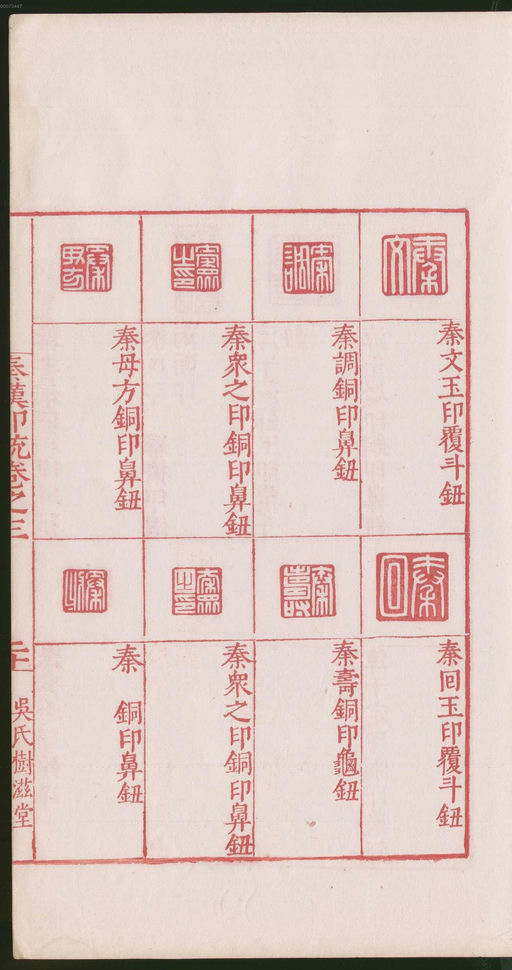 00073447
秦文玉印覆斗鈕
秦調銅印鼻鈕
秦眾之印銅印鼻鈕
秦毋方銅印鼻鈕
秦回玉印覆斗鈕
秦壽銅印龜鈕
秦眾之印銅印鼻鈕
秦 銅印鼻鈕
秦漢印統卷之三
吳氏樹滋堂